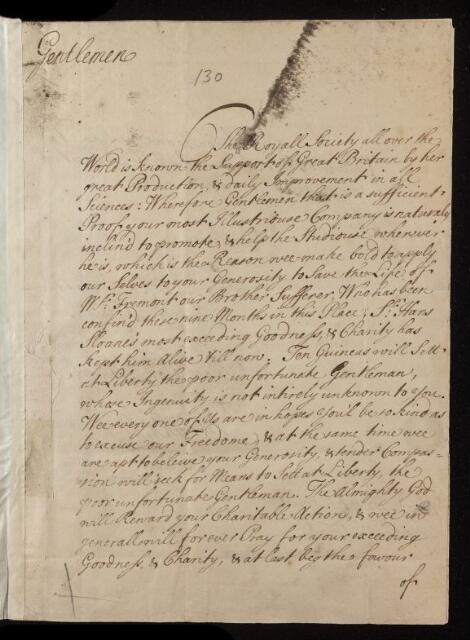 Gentlemen
130
The Royall Society all over the
World is known the Support of Great Britain by her
great Production, & daily Improvement in all
Sciences: Wherefore Gentlemen that is a sufficient
Proof your most Illustriouse Company is naturaly
inclind to promote, & help the Studiouse wherever
he is, which is the Reason wee make bold to apply
our Selves to your Generosity to Save the Life of
Mr. Fremont our Brother Sufferer, Who has been
confind these nine Months in this Place; Sr. Hans
Sloane's most exceeding Goodness, & Charity has
kept him Alive till now: Ten Guineas will Sett
at Liberty the poor unfortunate Gentleman,
whose Ingenuity is not intirely unknown to you.
Wee every one of Us are in hopes you'l be so kind as
to excuse our Freedome, & at the same time wee
are apt to beleive your Generosity, & tender Compas-
sion will seek for Means to Sett at Liberty, the
poor unfortunate Gentleman. The Almighty God
will Reward your Charitable Action, & wee in
generall will forever Pray for your exceeding
Goodness, & Charity, & at last beg the favour
of